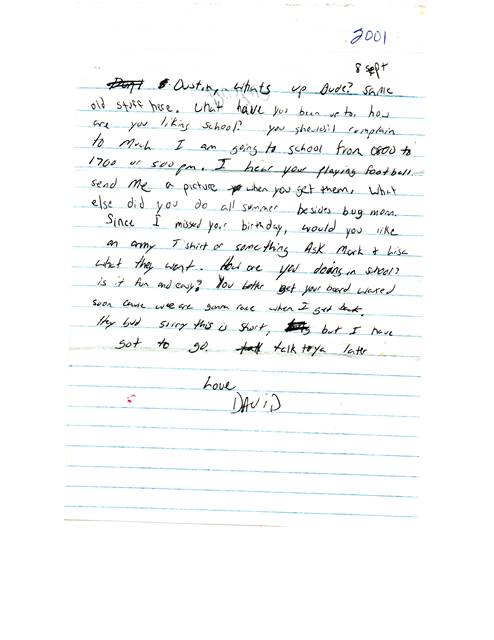 2001
8 sept
Dustin, whats up Dude? Same
old stuff here. What have you been up to. how
are you liking school? you should'nt complain
to Much I am going to school from 0800 to
1700 or 500 pm. I hear your playing football.
send me a picture when you get them. What
else did you do all summer besides bug mom.
Since I missed your birthday, would you like
an army T shirt or something ASK Mark + Lisa
what they want. How are you doing in school?
is it fun and easy? You better get your board waxed
soon cause we are gonna race when I get back.
Hey bud sorry this is short, but I have
got to go. talk to ya later
Love
DAViD